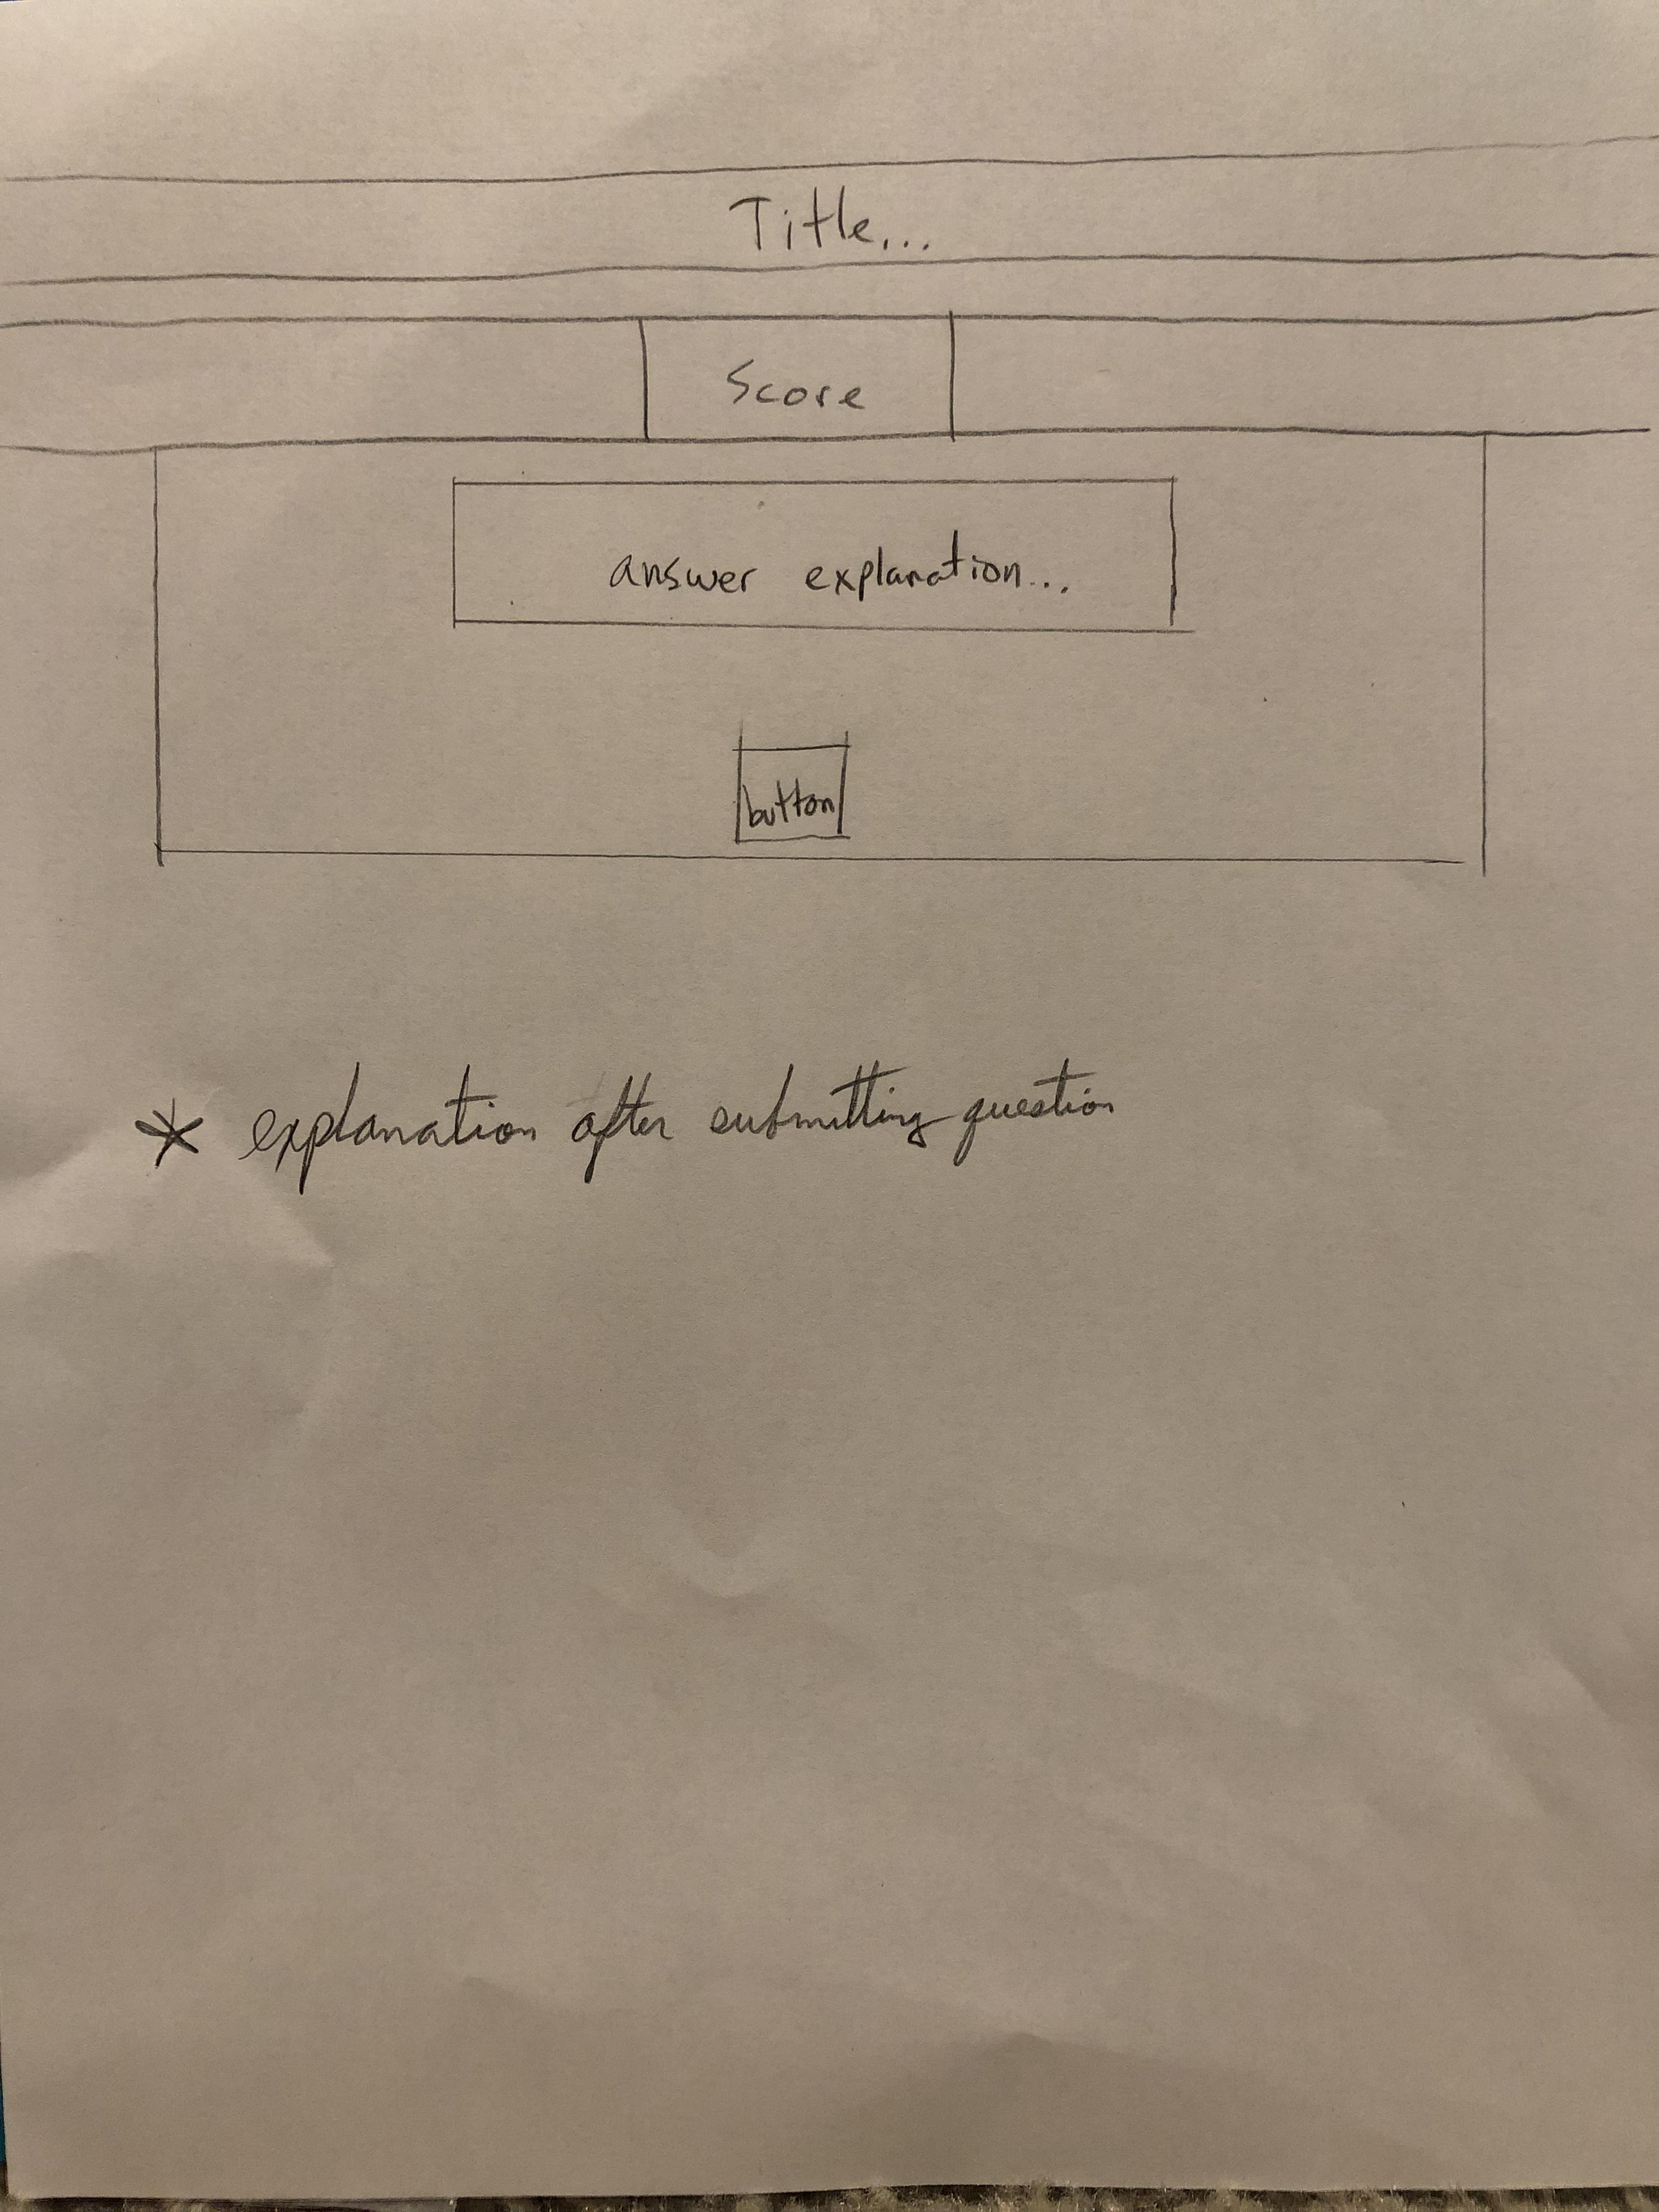 Title...
Score
answer explanation...
button
* explanation after submitting question